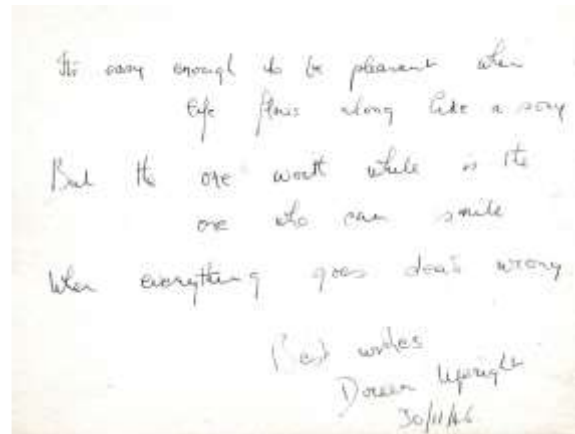 It's easy enough to be pleasant when
life flows along like a song
But the one worth while is the
one who can smile
When everything goes dead wrong
Best wishes
Doreen Upright
30/11/46